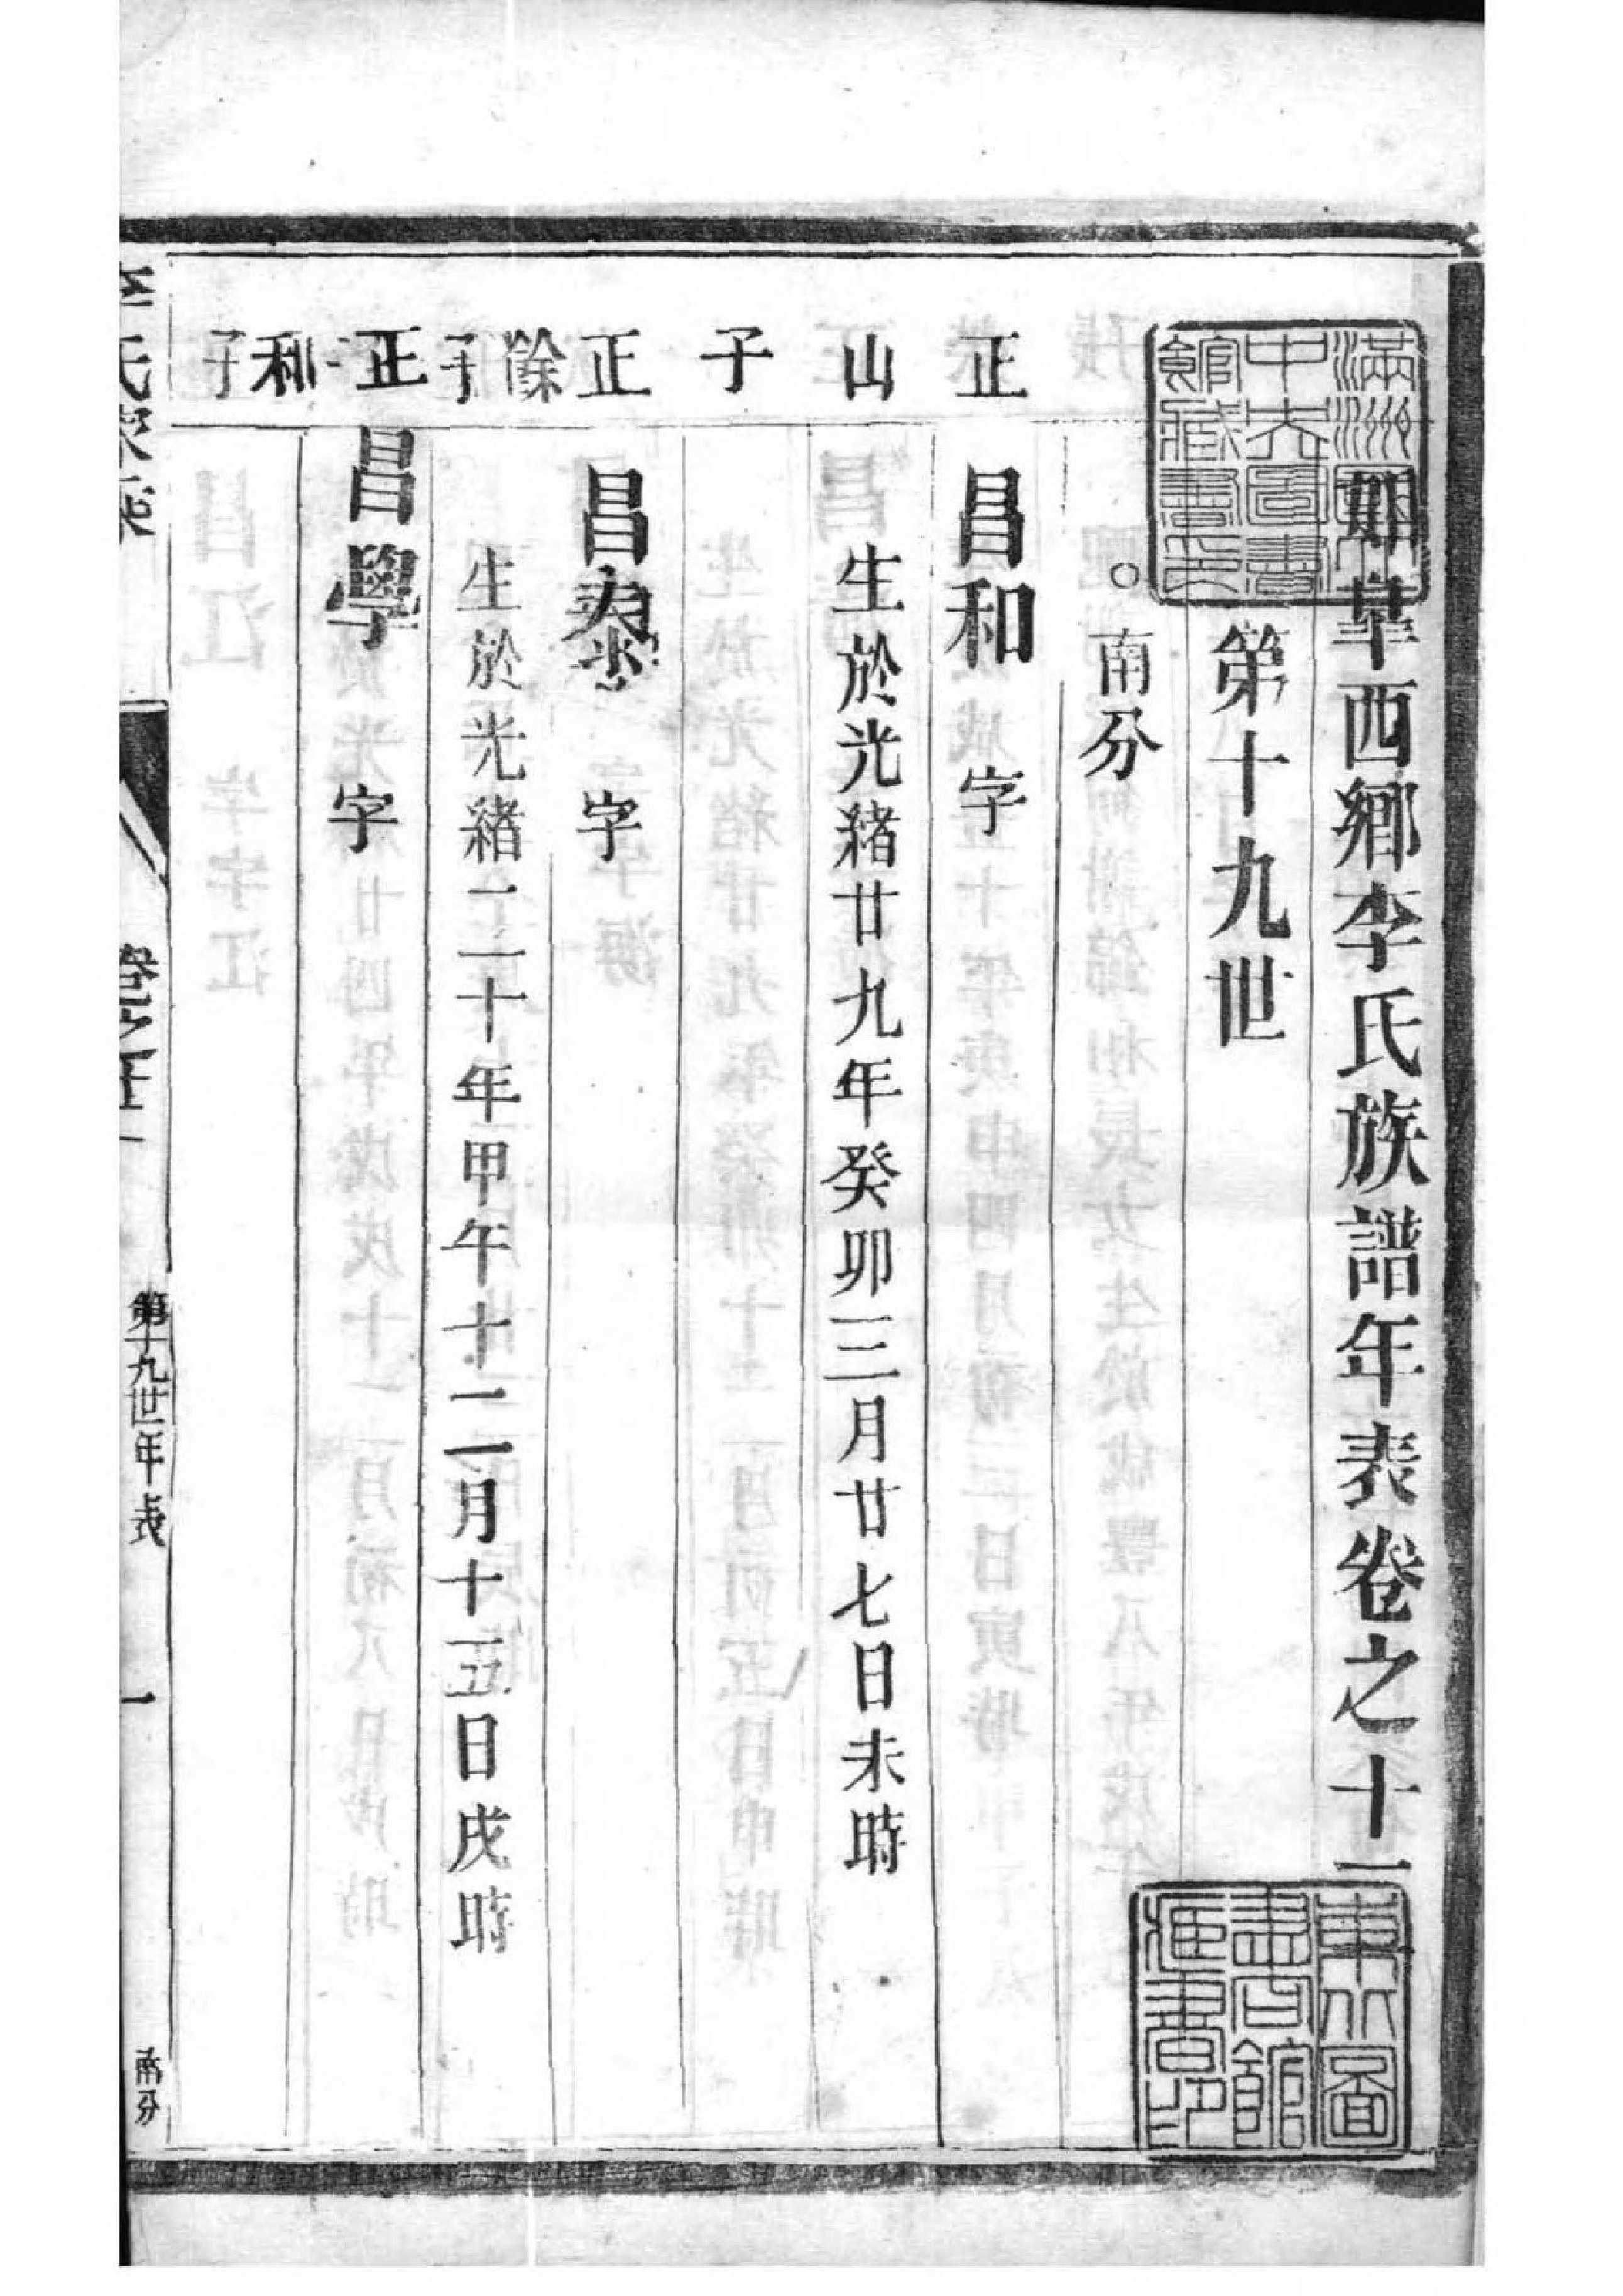 如皐西鄉李氏族譜年表卷之十一
第十九世
○南分
正 昌和 字
山 生於光緒廿九年癸卯三月廿七日未時
子
正 昌泰 字
餘子 生於光緒二十年甲午十二月十五日戌時
正 昌學 字
和子
李氏家乘
卷之十一
第十九世年表
一
南分
滿洲國
中央圖書
館藏書之印
東北圖
書館
藏書印